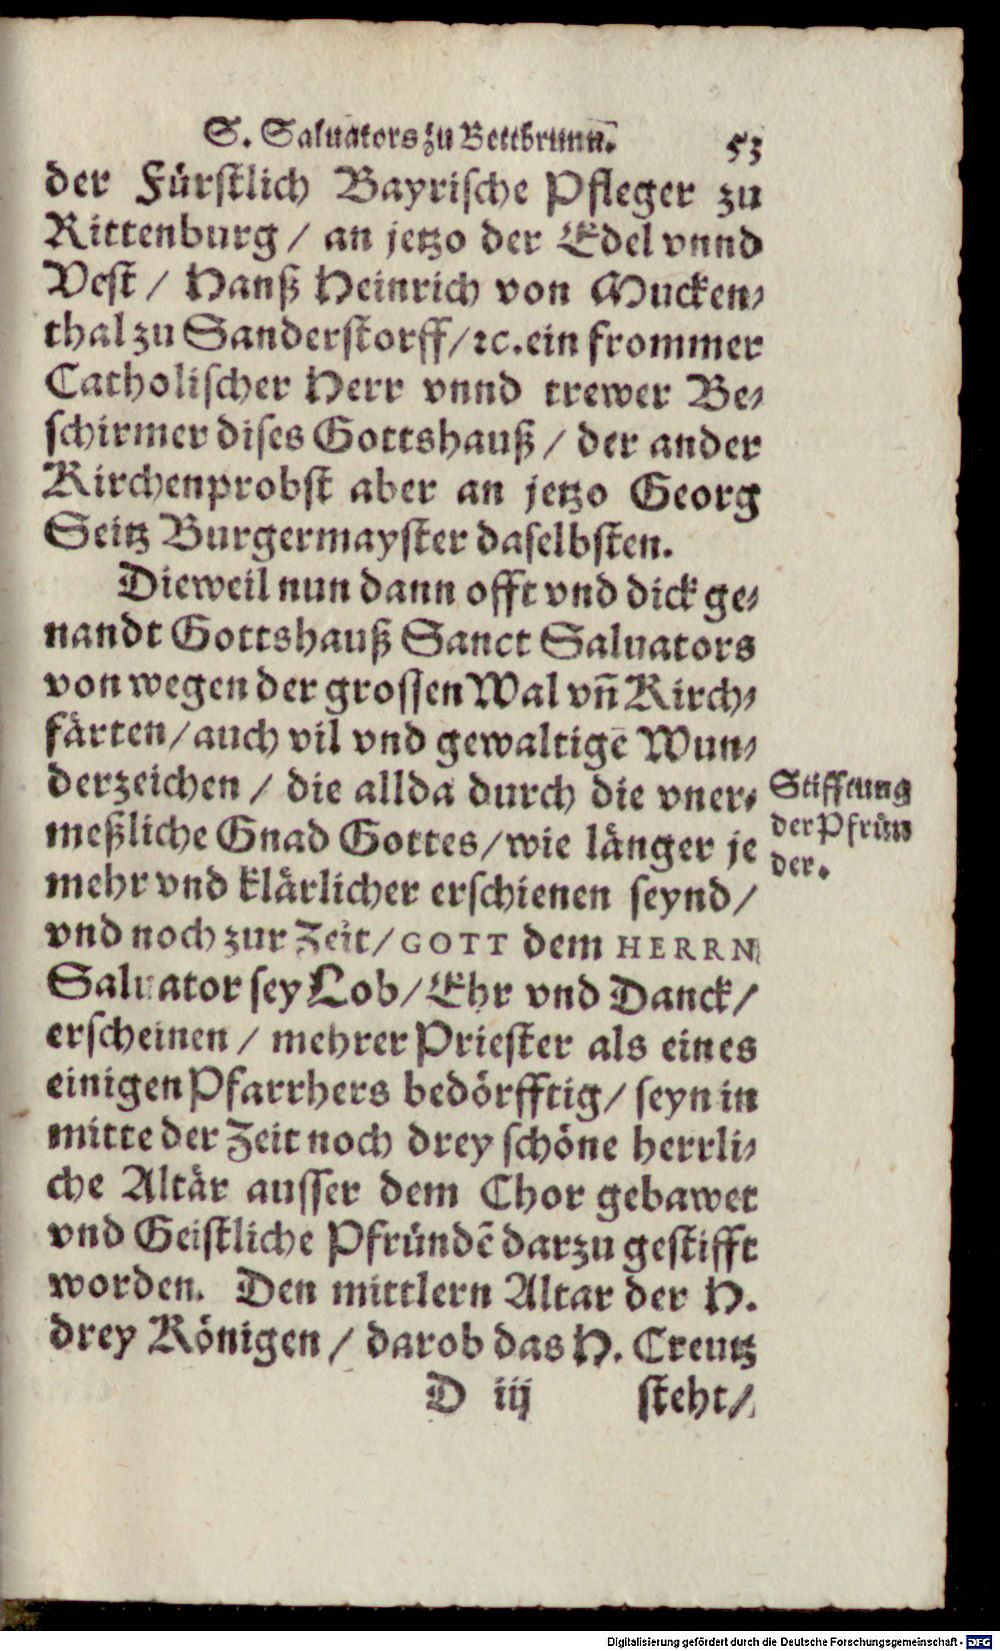 S. Saluators zu Bettbrunn̄. 53
der Fürstlich Bayrische Pfleger zu
Rittenburg / an jetzo der Edel vnnd
Vest / Hanß Heinrich von Mucken-
thal zu Sanderstorff / ꝛc. ein frommer
Catholischer Herr vnnd trewer Be-
schirmer dises Gottshauß / der ander
Kirchenprobst aber an jetzo Georg
Seitz Burgermayster daselbsten.
Dieweil nun dann offt vnd dick ge-
nandt Gottshauß Sanct Saluators
von wegen der grossen Wal vn̄ Kirch-
färten / auch vil vnd gewaltigē Wun-
derzeichen / die allda durch die vner-
meßliche Gnad Gottes / wie länger je
mehr vnd klärlicher erschienen seynd /
vnd noch zur Zeit / GOTT dem HERRN
Saluator sey Lob / Ehr vnd Danck /
erscheinen / mehrer Priester als eines
einigen Pfarrhers bedörfftig / seyn in
mitte der Zeit noch drey schöne herrli-
che Altär ausser dem Chor gebawet
vnd Geistliche Pfründē darzu gestifft
worden. Den mittlern Altar der H.
drey Königen / darob das H. Creutz
D iij steht /
Stifftung
der Pfrün
der.
Digitalisierung gefördert durch die Deutsche Forschungsgemeinschaft - DFG